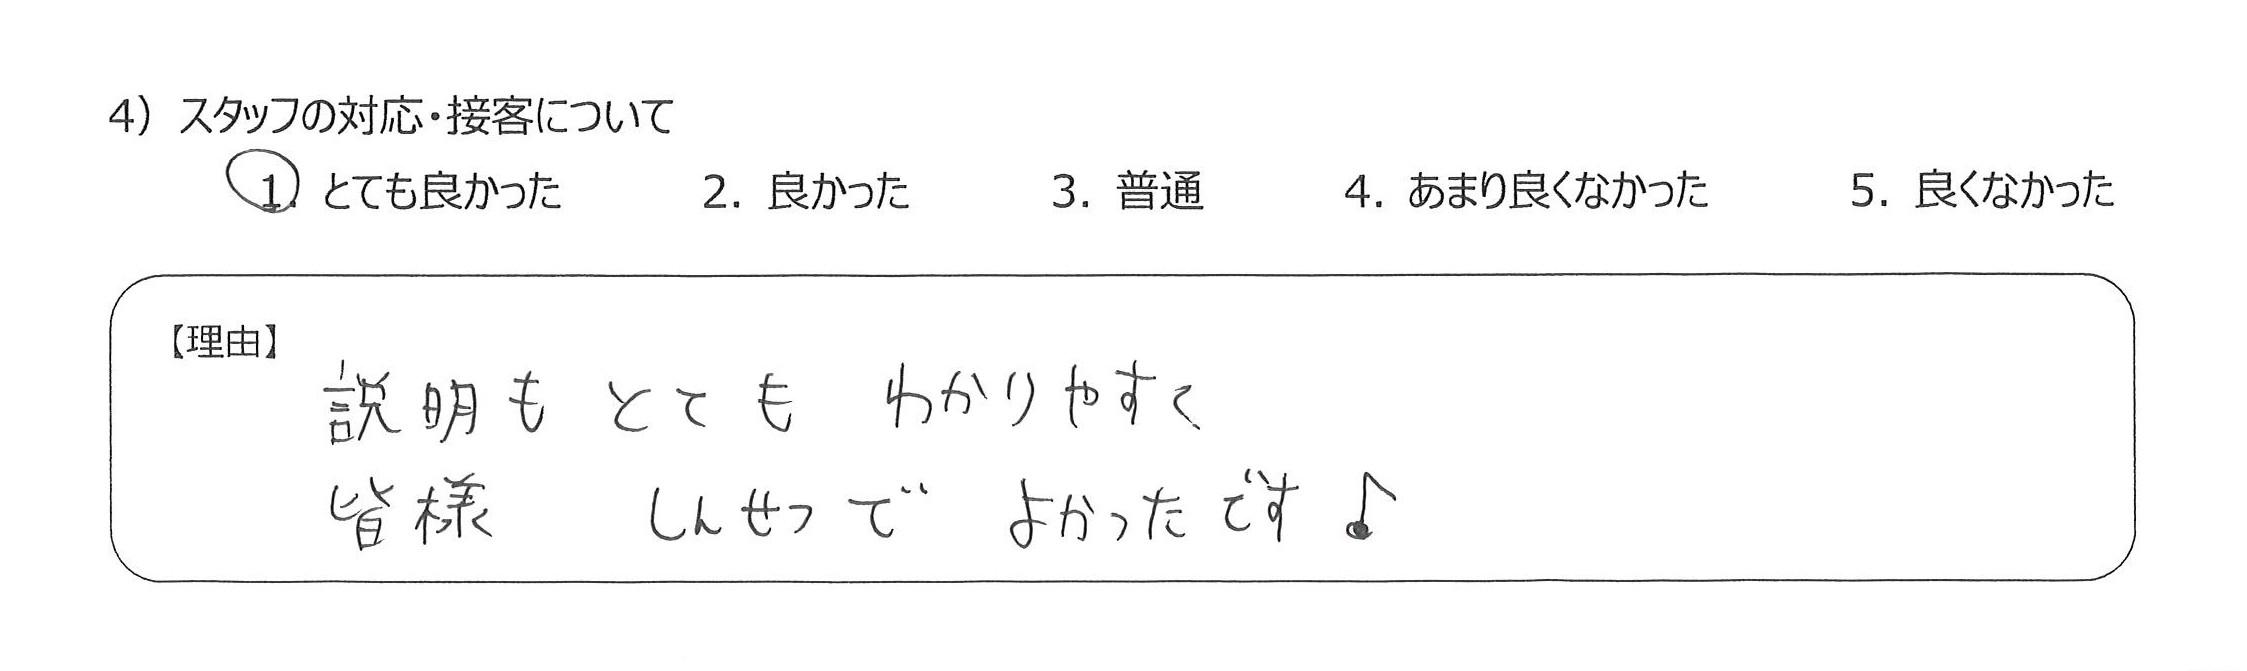 4）スタッフの対応・接客について
1. とても良かった 2. 良かった 3. 普通 4. あまり良くなかった 5. 良くなかった
【理由】
説明も とても わかりやすく
皆様 しんせつで よかったです♪